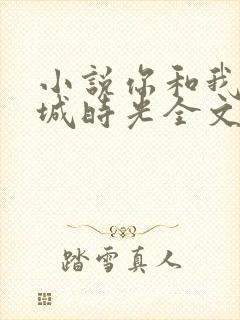 小说你和我
城时光全文
踏雪真人